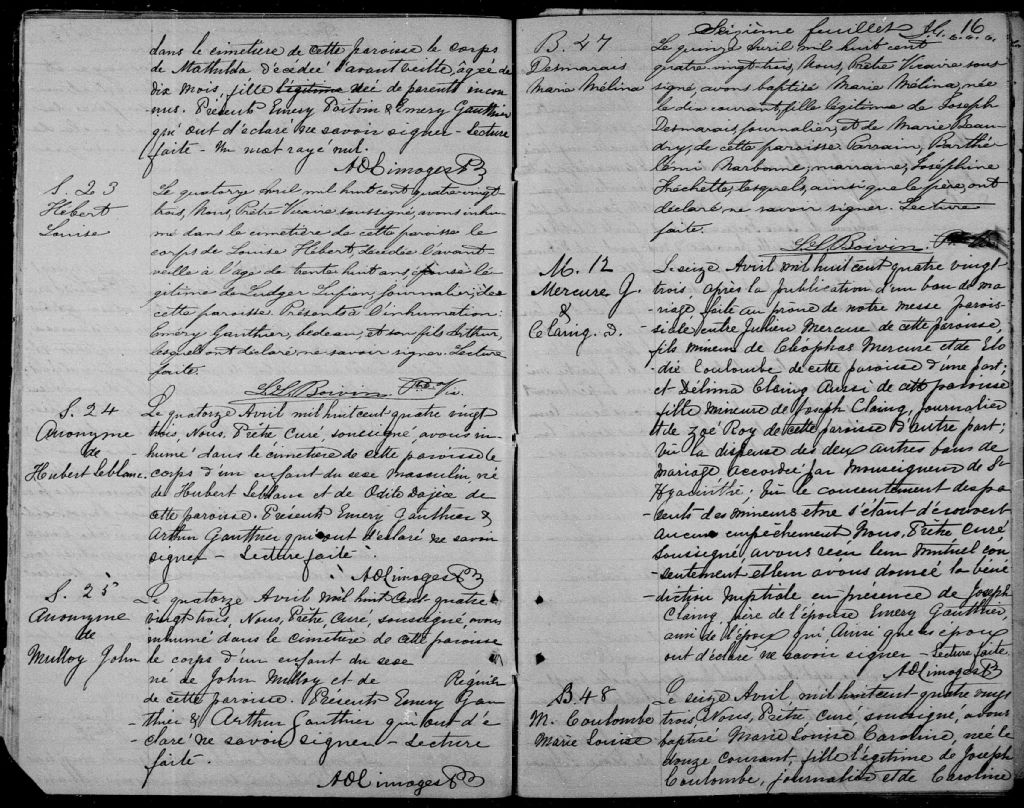 dans le cimetière de cette paroisse le corps
de Mathilda décédée l'avant veille, âgée de
dix mois, fille légitime née de parents incon
nus. Présents Emery Poitvin & Emery Gauthier
qui ont déclaré ne savoir signer - Lecture
faite - Un mot rayé nul.
AO Limoges Ptre
S. 23
Hébert
Louise
Le quatorze Avril mil huit cent quatre vingt
trois, Nous, Prêtre Vicaire soussigné, avons inhu
mé dans le cimetière de cette paroisse le
corps de Louise Hébert, décédée l'avant-
veille à l'âge de trente huit ans, épouse lé
gitime de Ludger Lusion, journalier, de
cette paroisse. Présents à l'inhumation:
Emery Gauthier, bedeau, et son fils Arthur,
lesquels ont déclaré ne savoir signer. Lecture
faite.
L.S. Boivin Ptre Vic.
S. 24
Anonyme
de
Hubert Leblanc.
Le quatorze Avril mil huit cent quatre vingt
trois, Nous, Prêtre Curé, soussigné, avons in-
humé dans le cimetière de cette paroisse le
corps d'un enfant du sexe masculin, né
de Hubert Leblanc et de Odile Dajex de
cette paroisse. Présents Emery Gauthier &
Arthur Gauthier qui ont déclaré ne savoir
signer - Lecture faite.
AO Limoges Ptre
S. 25
Anonyme
de
Mulloy John
Le quatorze Avril mil huit cent quatre
vingt trois, Nous, Prêtre Curé, soussigné, avons
inhumé dans le cimetière de cette paroisse
le corps d'un enfant du sexe
né de John Mulloy et de Requier
de cette paroisse. Présents Emery Gau
thier & Arthur Gauthier qui ont dé
claré ne savoir signer - Lecture
faite.
AO Limoges Ptre
Seizième feuillet 16
B. 47
Desmarais
Marie Mélina
Le quinze Avril mil huit cent
quatre vingt-trois, Nous, Prêtre Vicaire sous
signé, avons baptisé Marie Mélina, née
le dix courant, fille légitime de Joseph
Desmarais journalier, et de Marie Beau-
dry, de cette paroisse. Parrain, Barthé-
lémi Narbonne; marraine, Joséphine
Fréchette, lesquels, ainsi que le père, ont
déclaré ne savoir signer. Lecture
faite.
L.S. Boivin
M. 12
Mercure J.
&
Claing. D.
Le seize Avril mil huit cent quatre vingt
trois, après la publication d'un ban de ma
riage, faite au prône de notre messe parois
siale entre Julien Mercure de cette paroisse,
fils mineur de Cléophas Mercure et de Elo
die Coulombe de cette paroisse d'une part;
et Délima Claing Aussi de cette paroisse
fille mineure de Joseph Claing, journalier
& de Zoé Roy de cette paroisse d'autre part;
Vu la dispense des deux autres bans de
mariage accordée par Monseigneur de St
Hyacinthe; Vu le consentement des pa
rents des mineurs et ne s'étant découvert
aucun empêchement Nous, Prêtre Curé
soussigné avons reçu leur mutuel con
sentement et leur avons donné la béné
diction nuptiale en présence de Joseph
Claing, père de l'épouse Emery Gauthier,
ami de l'époux qui Ainsi que les époux
ont déclaré ne savoir signer - Lecture faite
AO Limoges Ptre
B 48
M. Coulombe
Marie Louise
Le seize Avril, mil huit cent quatre vingt
trois, Nous, Prêtre Curé, soussigné, avons
baptisé Marie Louise Caroline, née le
douze courant, fille légitime de Joseph
Coulombe, journalier et de Caroline